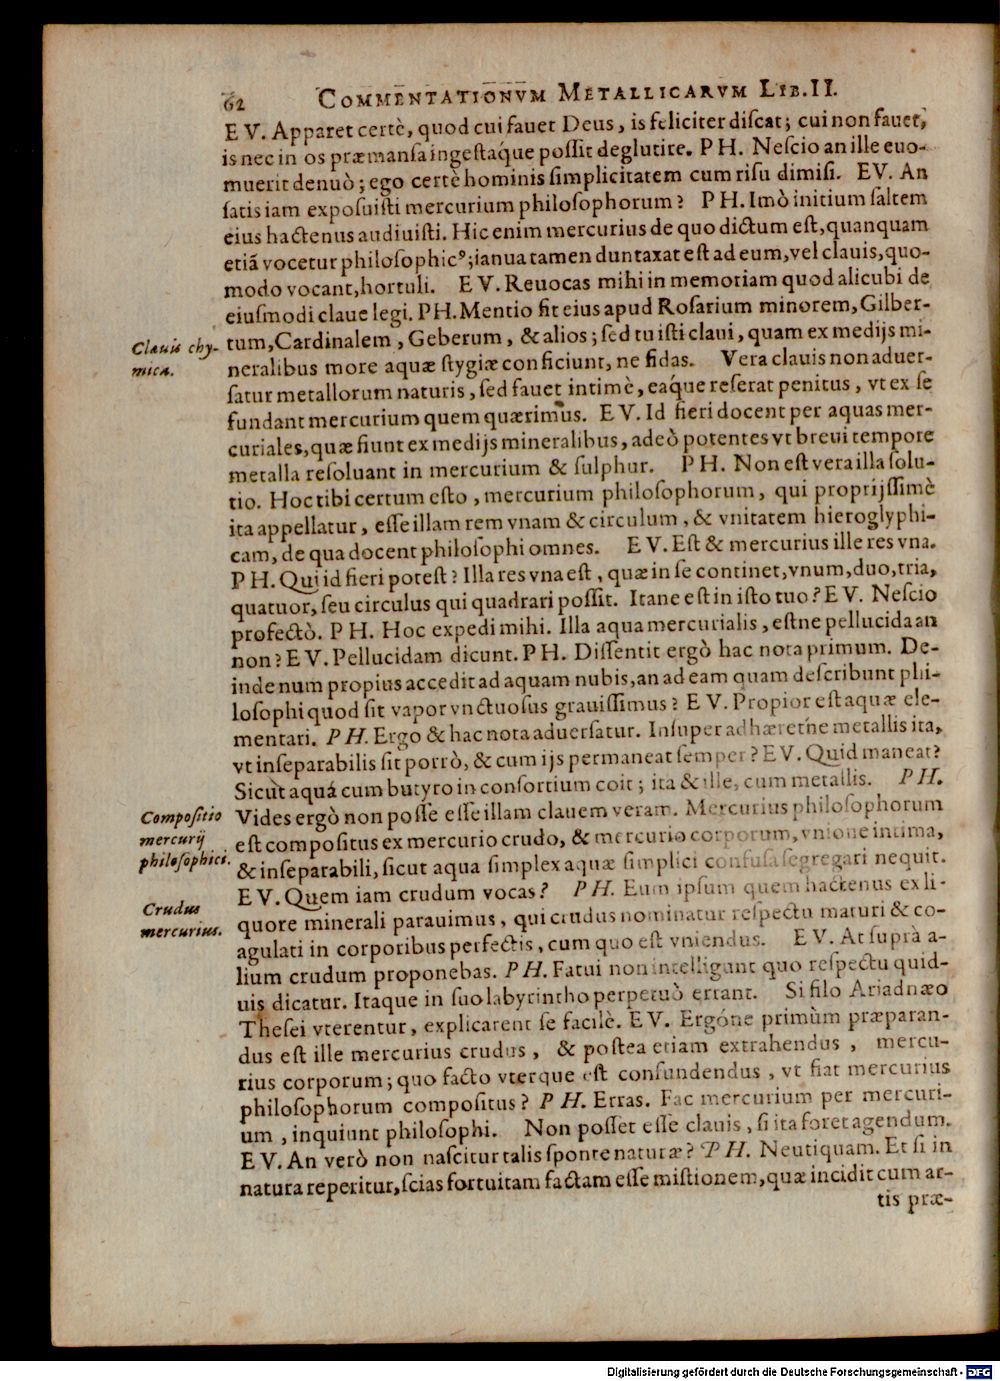 62 COMMENTATIONVM METALLICARVM LIB.II.
EV. Apparet certè, quod cui fauet Deus, is feliciter discat; cui non fauet,
is nec in os præmansa ingestáque possit deglutire. PH. Nescio an ille euo-
muerit denuò; ego certè hominis simplicitatem cum risu dimisi. EV. An
satis iam exposuisti mercurium philosophorum? PH. Imò initium saltem
eius hactenus audiuisti. Hic enim mercurius de quo dictum est, quanquam
etiã vocetur philosophicꝰ; ianua tamen duntaxat est ad eum, vel clauis, quo-
modo vocant, hortuli. EV. Reuocas mihi in memoriam quod alicubi de
eiusmodi claue legi. PH. Mentio fit eius apud Rosarium minorem, Gilber-
Clauis chy-
mica.
tum, Cardinalem, Geberum, & alios; sed tu isti claui, quam ex medijs mi-
neralibus more aquæ stygiæ conficiunt, ne fidas. Vera clauis non aduer-
satur metallorum naturis, sed fauet intimè, eáque reserat penitus, vt ex se
fundant mercurium quem quærimus. EV. Id fieri docent per aquas mer-
curiales, quæ fiunt ex medijs mineralibus, adeò potentes vt breui tempore
metalla resoluant in mercurium & sulphur. PH. Non est vera illa solu-
tio. Hoc tibi certum esto, mercurium philosophorum, qui proprijssimè
ita appellatur, esse illam rem vnam & circulum, & vnitatem hieroglyphi-
cam, de qua docent philosophi omnes. EV. Est & mercurius ille res vna.
PH. Qui id fieri potest? Illa res vna est, quæ in se continet, vnum, duo, tria,
quatuor, seu circulus qui quadrari possit. Itane est in isto tuo? EV. Nescio
profectò. PH. Hoc expedi mihi. Illa aqua mercurialis, estne pellucida an
non? EV. Pellucidam dicunt. PH. Dissentit ergò hac nota primum. De-
inde num propius accedit ad aquam nubis, an ad eam quam describunt phi-
losophi quod sit vapor vnctuosus grauissimus? EV. Propior est aquæ ele-
mentari. PH. Ergo & hac nota aduersatur. Insuper adhæretne metallis ita,
vt inseparabilis sit porrò, & cum ijs permaneat semper? EV. Quid maneat?
Sicut aquá cum butyro in consortium coit; ita & ille, cum metallis. PH.
Compositio
mercurij
philosophici.
Vides ergò non posse esse illam clauem veram. Mercurius philosophorum
est compositus ex mercurio crudo, & mercurio corporum, vnione intima,
& inseparabili, sicut aqua simplex aquæ simplici confusa segregari nequit.
EV. Quem iam crudum vocas? PH. Eum ipsum quem hactenus ex li-
Crudus
mercurius.
quore minerali parauimus, qui crudus nominatur respectu maturi & co-
agulati in corporibus perfectis, cum quo est vniendus. EV. At suprà a-
lium crudum proponebas. PH. Fatui non intelligunt quo respectu quid-
uis dicatur. Itaque in suo labyrintho perpetuò errant. Si filo Ariadnæo
Thesei vterentur, explicarent se facilè. EV. Ergóne primùm præparan-
dus est ille mercurius crudus, & postea etiam extrahendus, mercu-
rius corporum; quo facto vterque est confundendus, vt fiat mercurius
philosophorum compositus? PH. Erras. Fac mercurium per mercuri-
um, inquiunt philosophi. Non posset esse clauis, si ita foret agendum.
EV. An verò non nascitur talis sponte naturæ? PH. Neutiquam. Et si in
natura reperitur, scias fortuitam factam esse mistionem, quæ incidit cum ar-
tis præ-
Digitalisierung gefördert durch die Deutsche Forschungsgemeinschaft - DFG